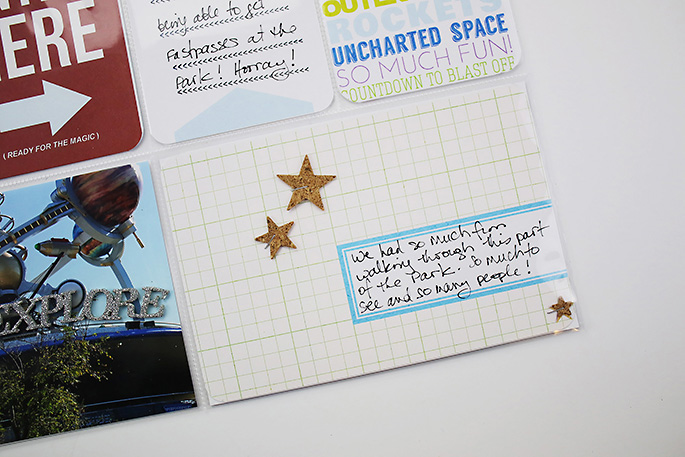 HERE
( READY FOR THE MAGIC )
being able to get
Fastpasses at the
Park! Horray!
ROCKETS
UNCHARTED SPACE
SO MUCH FUN!
COUNTDOWN TO BLAST OFF
EXPLORE
We had so much fun
walking through this part
of the Park. So much to
see and so many people!